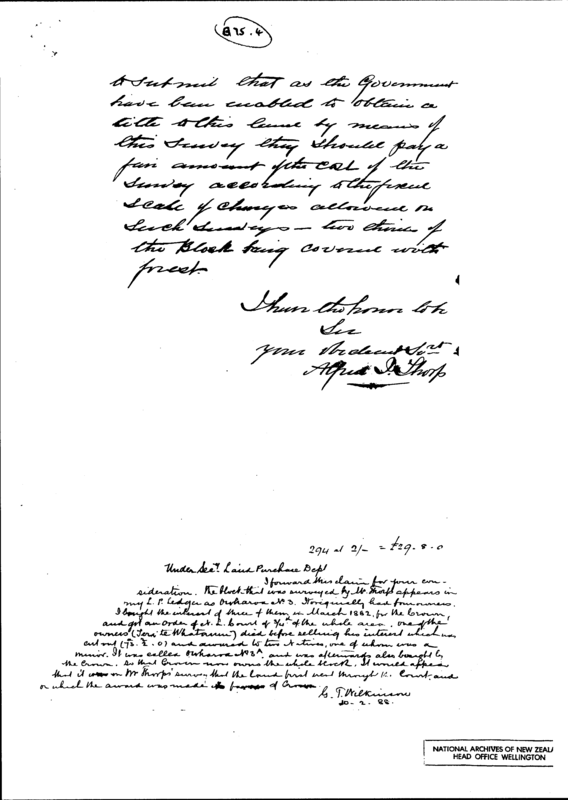 B75.4
to submit that as the Government
have been enabled to obtain a
title to this land by means of
this Survey they should pay a
fair amount of the cost of the
Survey according to the fixed
Scale of Charges allowed on
Such Surveys — two thirds of
the Block being covered with
forest.
I have the honor to be
Sir
your obedient Svt
Alfred J. Thorp
294 at 2/- = £29.8.0
Under Secy. Land Purchase Dept
I forward this claim for your con-
sideration. The block that was surveyed by Mr Thorp appears in
my L.P. ledger as Owharoa No 3. It originally had four owners.
I bought the interest of three of them, in March 1882, for the Crown
and got an Order of N. L. Court of 3/4ths of the whole area. one of the
owners died before selling his interest which was
cut out and awarded to two Natives, one of whom was a
minor. It was called Owharoa and was afterwards also bought by
the Crown. so that Crown now owns the whole block. It would appear
that it was on Mr Thorp's survey that the land first went through the Court, and
on which the award was made of Crown
G. T. Wilkinson
20-2-88.
NATIONAL ARCHIVES OF NEW ZEALA
HEAD OFFICE WELLINGTON